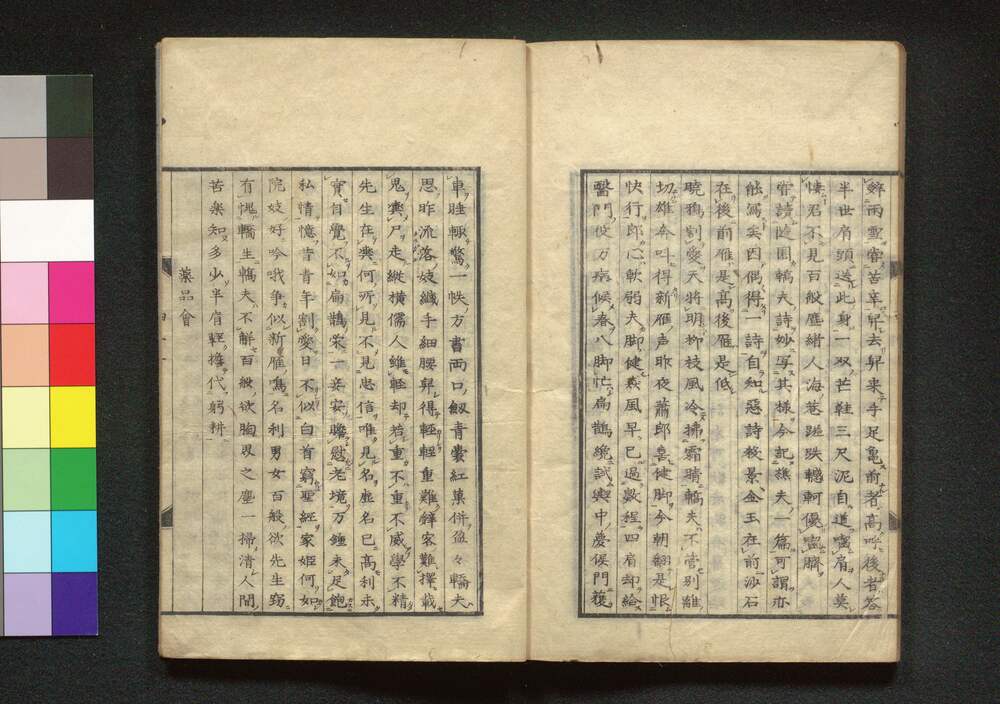 辭雨雪霄苦辛舁去舁来手足亀前者高呼後者答
半世肩頭送此身一双芒鞋三尺泥自道窩肩人莫
悽君不見百般塵緒人海巷蹉跌轗軻優窩臍
嘗讀随園轎夫詩妙写其様今記樵夫一篇可謂亦
能写矣因偶得一詩自知惡詩殺景金玉在前沙石
在後前雁是高後雁是低
曉鴉割愛天將明柳枝風冷拂霜晴轎夫不管別離
切雄奔叫得新雁声昨夜蕭郎喜健脚今朝翻是恨
快行郎心軟弱夫脚健羨風早已過数程四肩却給
醫門役万病候春八脚忙扁鵲纔試輿中憂候門獲
車睦輙驚一帙方書両口劔青嚢紅菓併盈々轎夫
思昨流落妓纎手細腰舁得軽軽重難舁家難擇載
鬼輿尸走縱横儒人雖軽却若重不重不威學不精
先生在輿何所見不見忠信唯見名並名已高利未
實自覺不如扁鵲栄一妾安瞻慰老境万鍾未足飽
私情憶昔青年割愛日不似白首窮聖經家姫何如
院妓好吟哦争似新雁鳴名利男女百般欲先生窈
有愧轎生轎夫不解百般欲胸臭之塵一掃清人間
苦楽知多少半肩軽擔代躬耕
薬品會